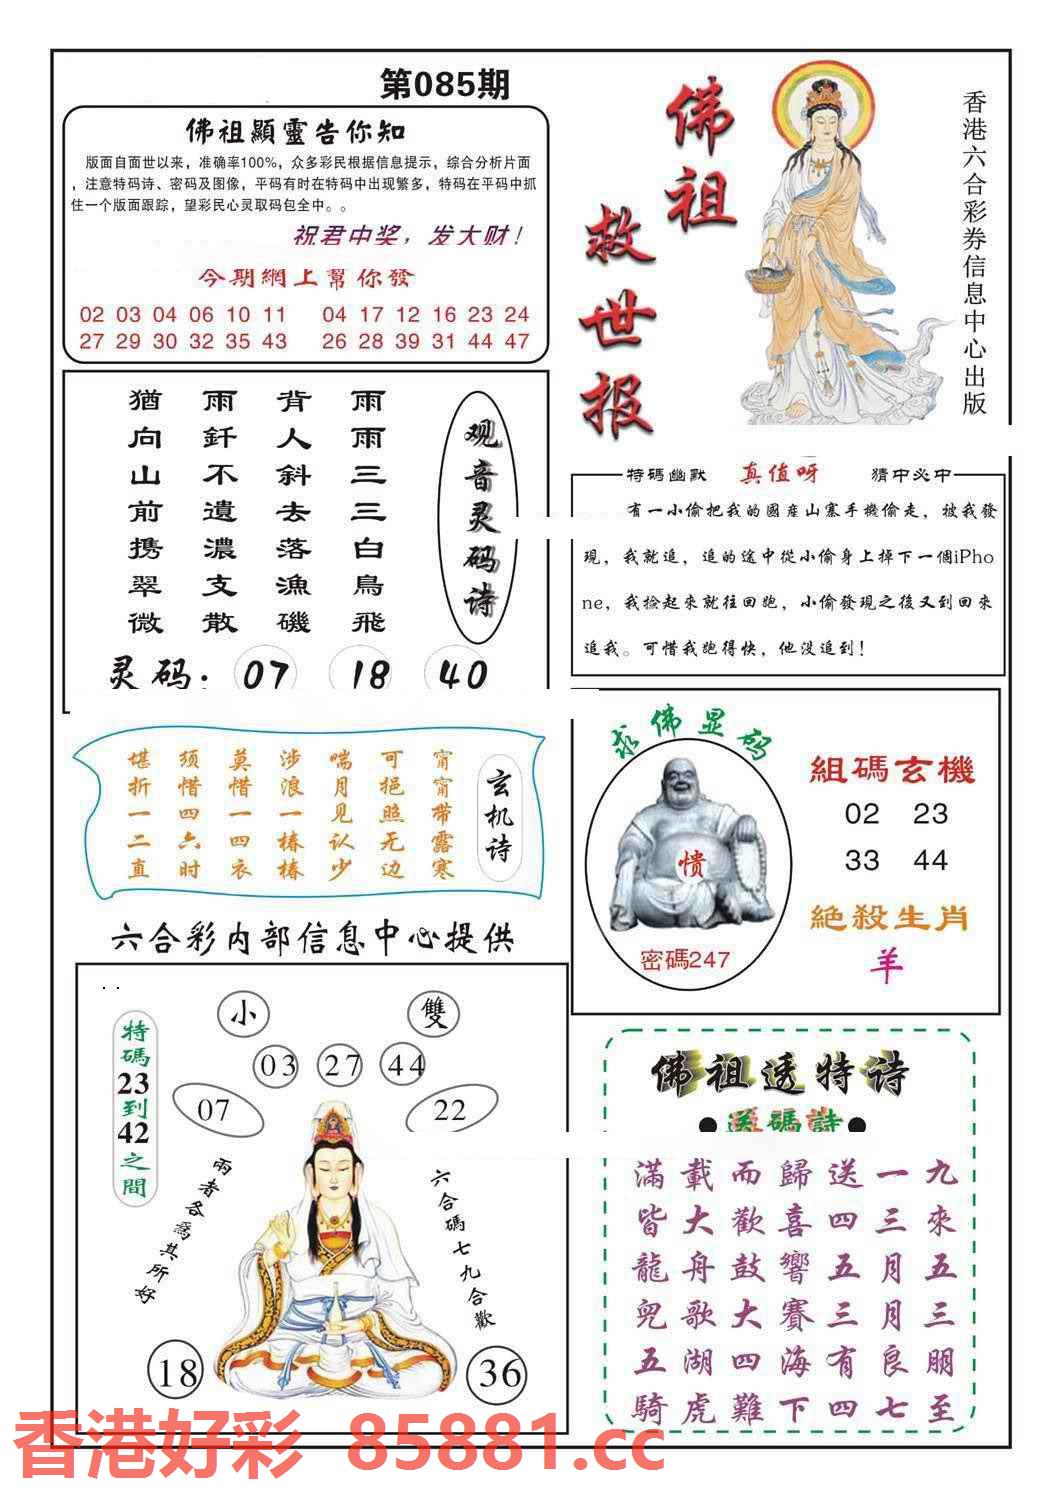 第085期
佛祖顯靈告你知
版面自面世以来，准确率100%，众多彩民根据信息提示，综合分析片面
，注意特码诗、密码及图像，平码有时在特码中出现繁多，特码在平码中抓
住一个版面跟踪，望彩民心灵取码包全中。。
祝君中奖，发大财！
今期網上幫你發
02 03 04 06 10 11 04 17 12 16 23 24
27 29 30 32 35 43 26 28 39 31 44 47
佛祖
救世报
香港六合彩券信息中心出版
观音灵码诗
雨雨三三白鳥飛
背人斜去落漁磯
雨釺不遺濃支散
猶向山前携翠微
灵码：07 18 40
特碼幽默 真值呀 猜中必中
有一小偷把我的國産山寨手機偷走，被我發
現，我就追，追的途中從小偷身上掉下一個iPho
ne，我撿起來就往回跑，小偷發現之後又到回來
追我。可惜我跑得快，他没追到！
玄机诗
甯甯带露寒
可挹照无边
喘月见认少
涉浪一椿椿
莫惜一四衣
须惜四六时
堪折一二直
求佛显码
愦
密碼247
組碼玄機
02 23
33 44
絕殺生肖
羊
六合彩内部信息中心提供
特碼23到42之間
小 雙
03 27 44
07 22
兩者各爲其所好
六合碼七九合歡
18 36
佛祖透特诗
●送碼詩●
滿載而歸送一九
皆大歡喜四三來
龍舟鼓響五月五
兜歌大賽三月三
五湖四海有良朋
騎虎難下四七至
香港好彩 85881.cc